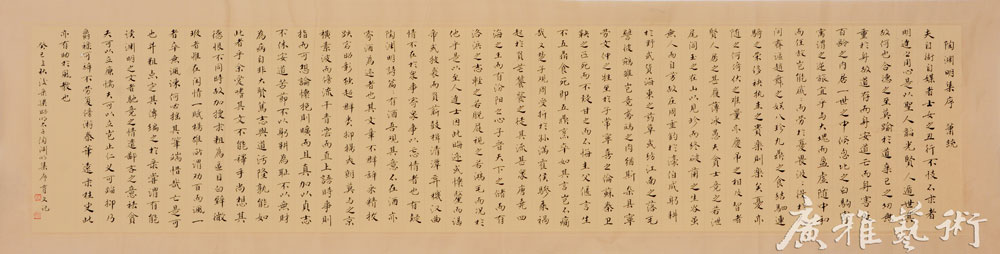 陶淵明集序 蕭統
夫自衒自媒者士女之醜行不忮不求者
明達之用心是以聖人韜光賢人遁世其
故何也含德之至莫踰於道親己之切無
重於身故道存而身安道亡而身害處
百齡之內居一世之中倏忽比之白駒
寄寓謂之逆旅宜乎與大塊而盈虛隨中和
而任放豈能戚戚勞於憂畏汲汲役於人
間齊謳趙舞之娛八珍九鼎之食結駟連
騎之榮侈袂執圭之貴樂則樂矣憂亦
隨之何倚伏之難量亦慶弔之相及智者
賢人居之甚履薄冰愚夫貪士競之若泄
尾閭玉之在山以見珍而招破蘭之生谷雖
無人而自芳故莊周垂釣於濠伯成躬耕
於野或貨海東之藥草或紡江南之落毛
譬彼鴛雛豈競鳶鴟之肉猶斯雜縣寧
勞文仲之牲至於子常甯喜之倫蘇秦衛
鞅之匹死而不疑甘之而不悔主父偃言生
不五鼎食死即五鼎烹卒如其言豈不痛
哉又楚子觀周受折於孫滿霍侯驂乘禍
起於負芒饕餮之徒其流甚眾唐堯四
海之主而有汾陽之心子晉天下之儲而有
洛濱之志輕之若脫屣視之若鴻毛而況於
他乎是以至人達士因此晦迹或懷釐而謁
帝或披裘而負薪鼓楫清潭棄機漢曲
情不在於眾事寄眾事以忘情者也有疑
陶淵明詩篇篇有酒吾觀其意不在酒亦
寄酒為迹者也其文章不群辭采精拔
跌宕昭彰獨超群類抑揚爽朗莫與之京
橫素波而傍流干青雲而直上語時事則
指而可想論懷抱則曠而且真加以貞志
不休安道苦節不以躬耕為恥不以無財
為病自非大賢篤志與道污隆孰能如
此者乎余愛嗜其文不能釋手尚想其
德恨不同時故加搜求粗為區目白璧微
瑕者惟在閑情一賦楊雄所謂勸百而諷一
者卒無諷諫何必搖其筆端惜哉亡是可
也并粗點定其傳編之於錄嘗謂有能
讀淵明之文者馳競之情遣鄙吝之意祛貪
夫可以廉懦夫可以立豈止仁義可蹈抑乃
爵祿可辭不勞復傍游泰華遠求柱史此
亦有助於風教也
廣雅藝術